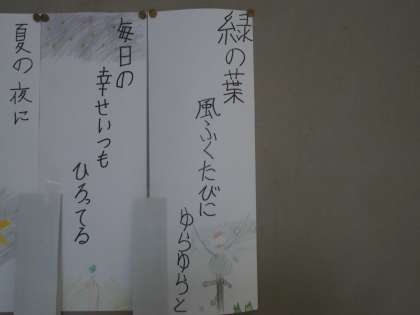 緑の葉
風ふくたびに
ゆらゆらと
毎日の
幸せいつも
ひろってる
夏の夜に